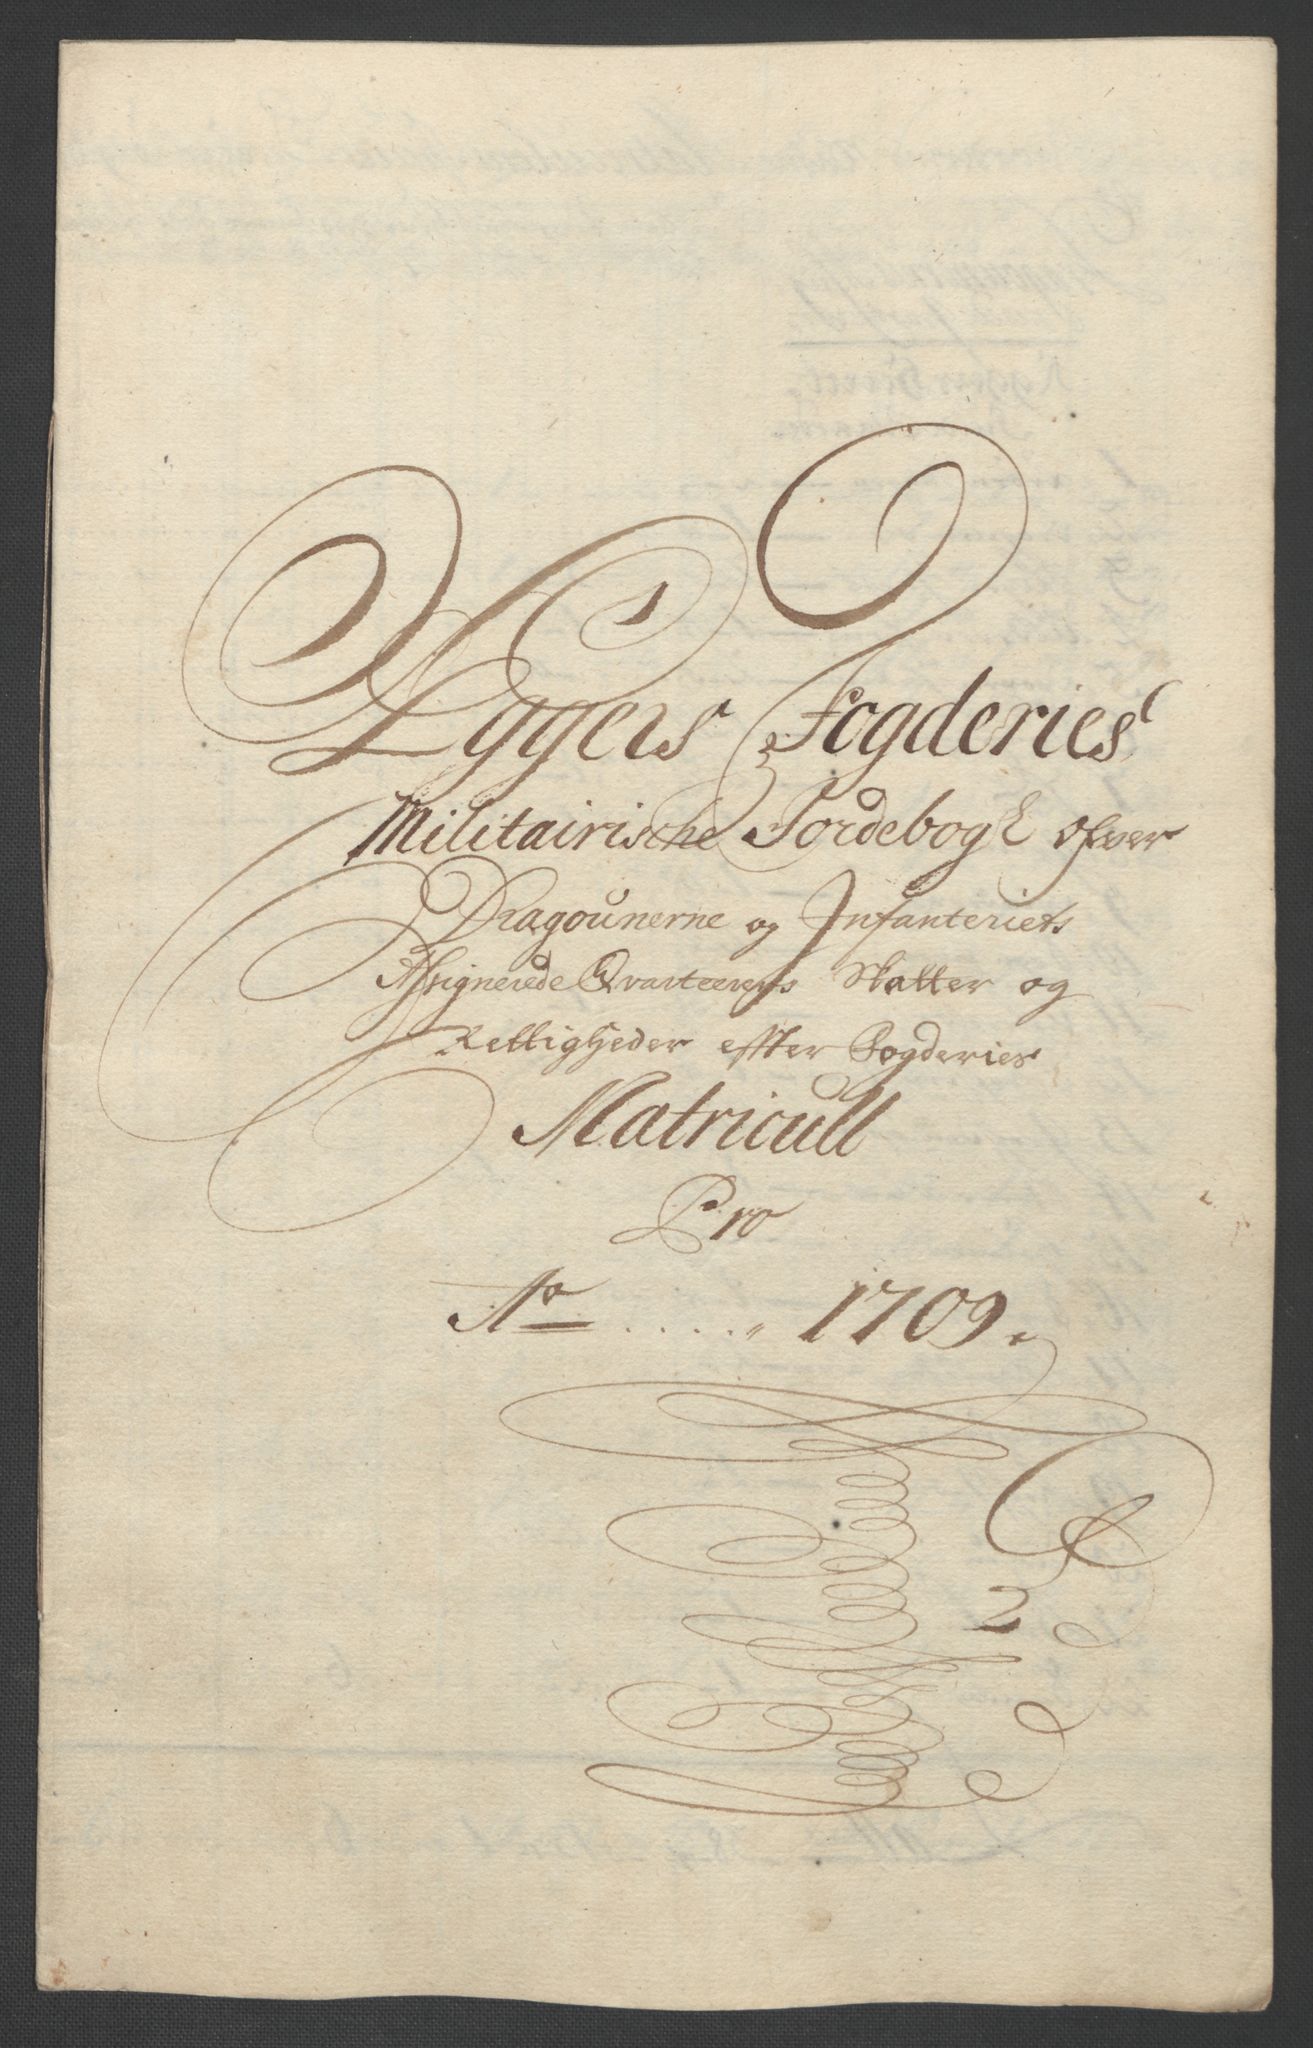 Eggers Fogderies
Militairische Jordebogh ofver
Dragounerne og Infanteriets
Assignerede Qvarteerers Skatter og
Rettigheder effter Fogderies
Matricull
Pro
Ao ..... 1709.
2